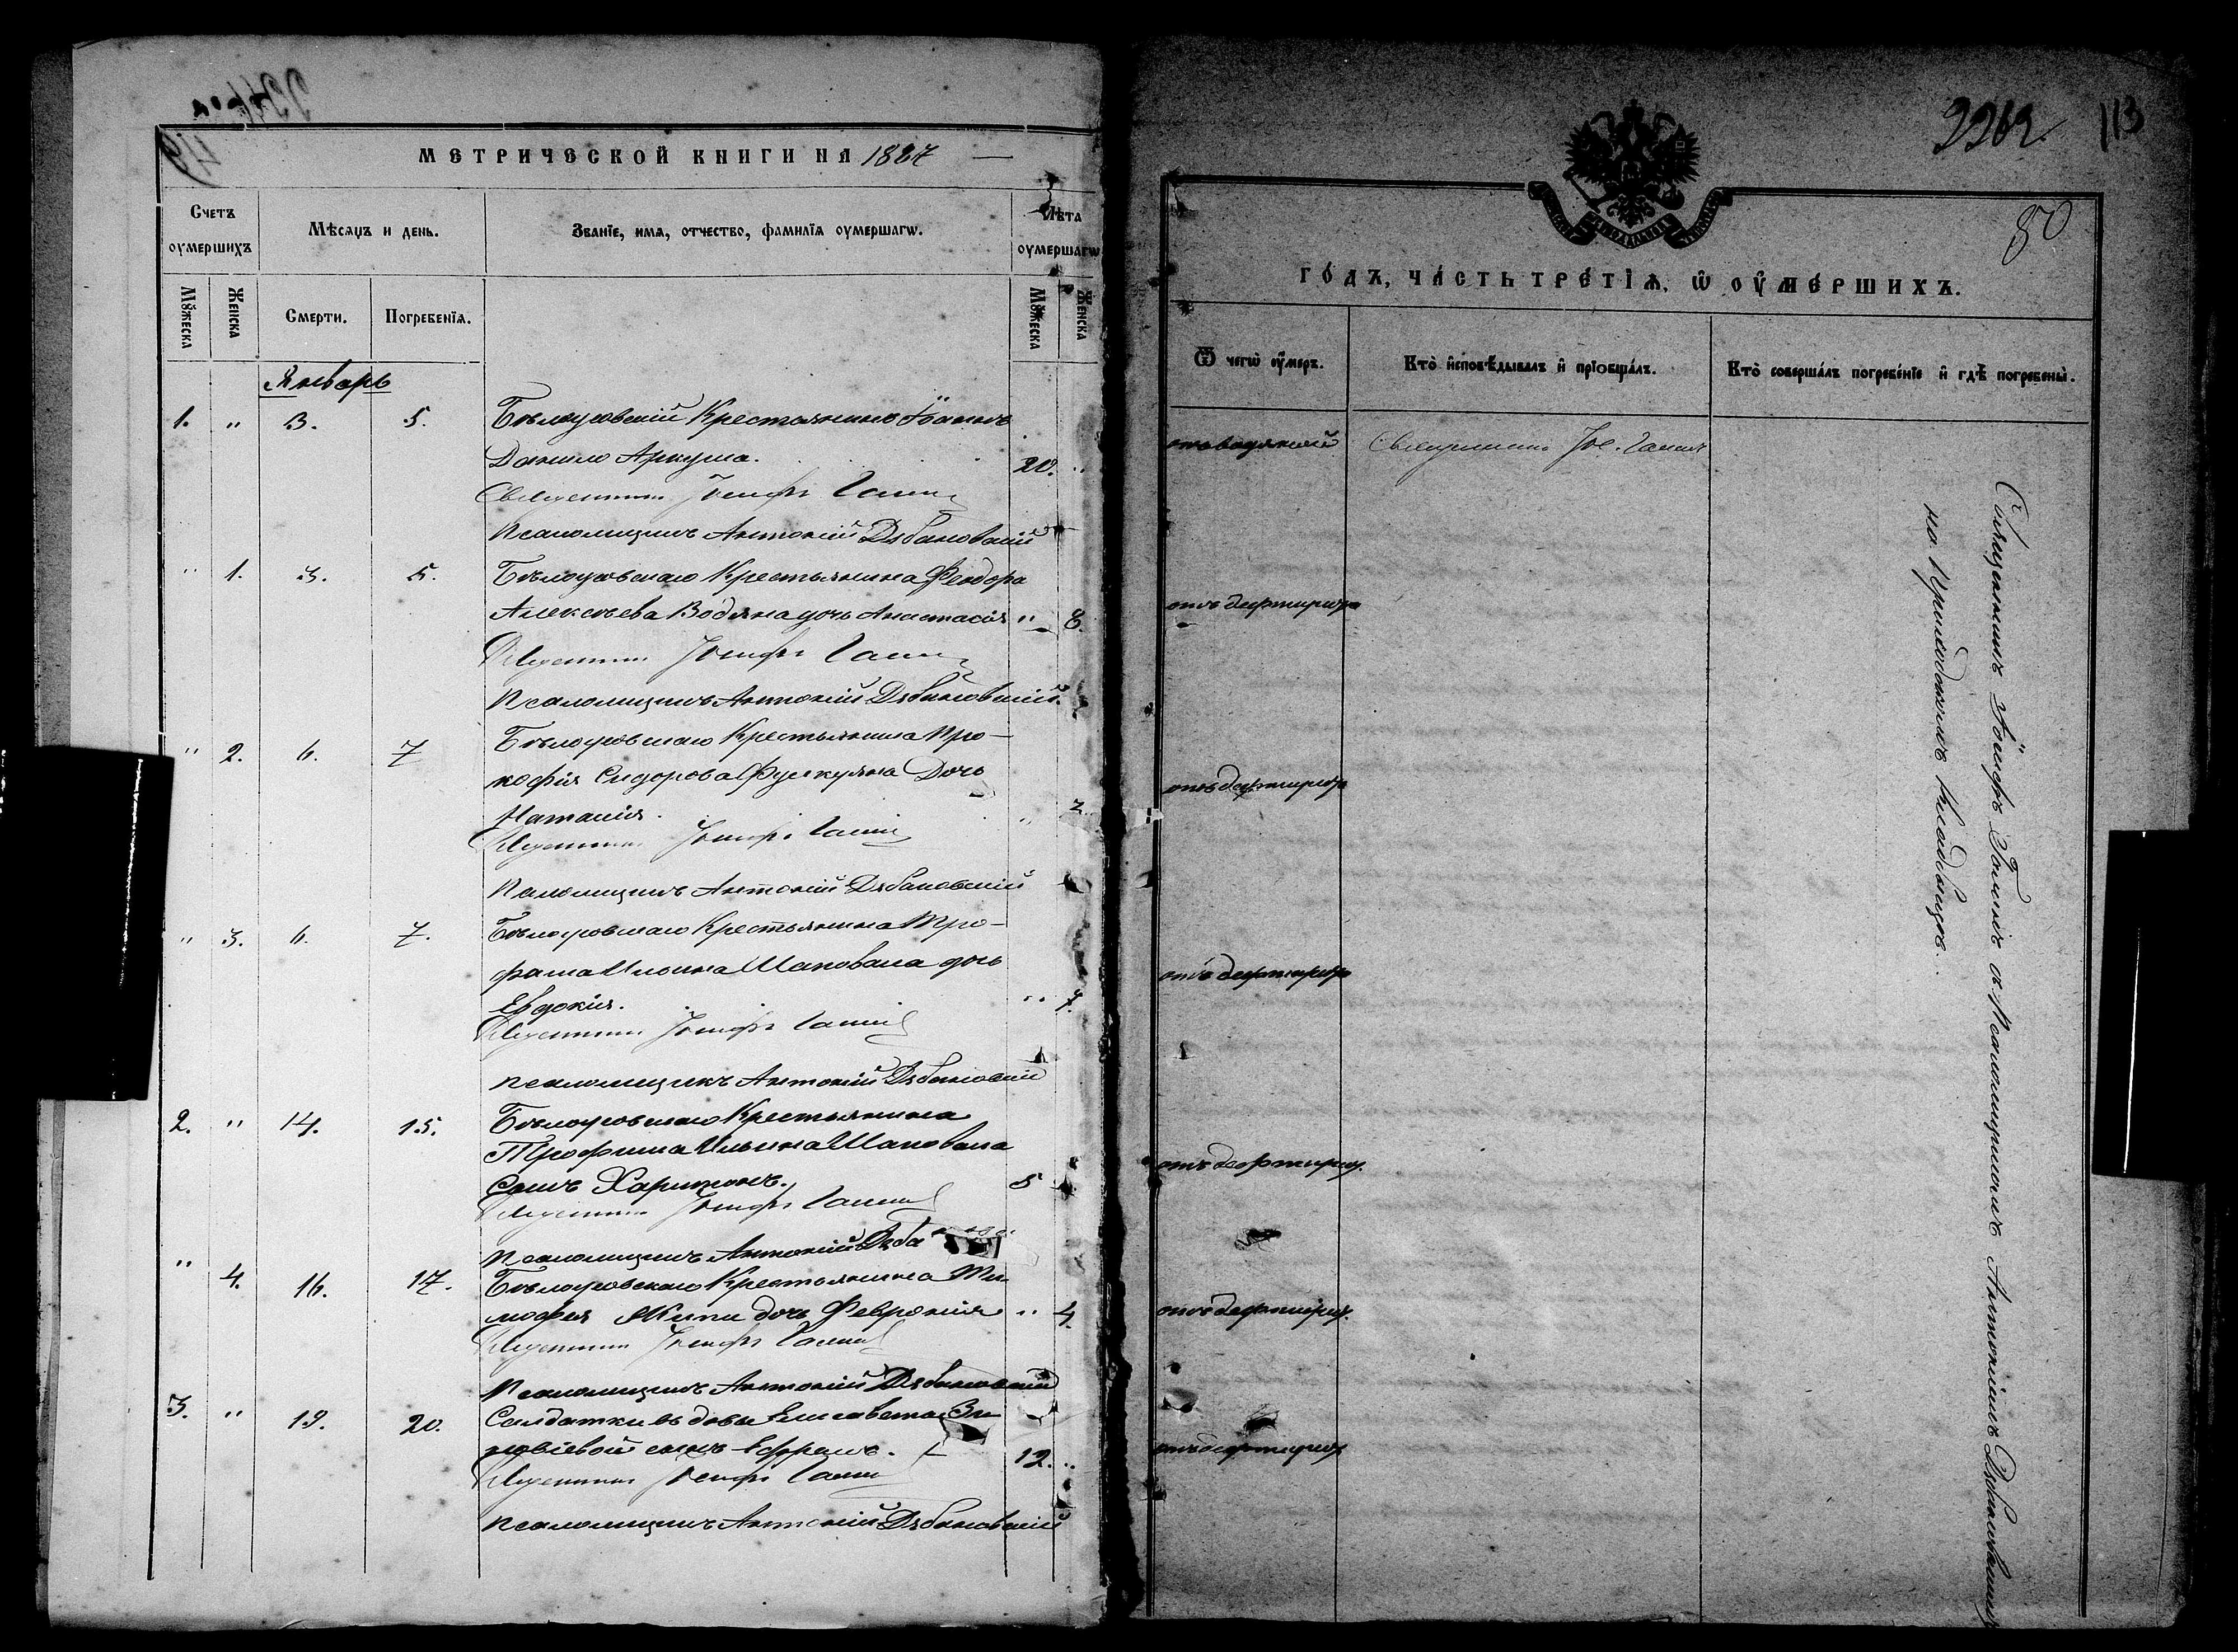 МЕТРИЧЕСКОЙ КНИГИ НА 1887
Счетъ оумершихъ
Мѣсяцъ и день.
Званїе, имя, отчество, фамилїя оумершагѡ.
Лѣта оумершагѡ
Мꙋжеска
Женска
Смерти.
Погребенїя.
Мꙋжеска
Женска
Январь
1. " 3. 5. Бѣлоусовскій Крестьянинъ Іоаннъ
Данило Аркуша. 20. "
Священникъ Іосифъ
Псаломщикъ Антоній Дзбановскій
" 1. 3. 5. Бѣлоусовскаго Крестьянина Феодора
Алексѣева Водяна дочь Анастасія " 8.
Священникъ Іосифъ
Псаломщикъ Антоній Дзбановскій.
" 2. 6. 7 Бѣлоусовскаго Крестьянина Про-
кофія Сидорова дочь
Наталія. " 2
Священникъ Іосифъ
Псаломщикъ Антоній Дзбановскій
" 3. 6. 7. Бѣлоусовскаго Крестьянина Тро-
фима Ильина Шаповала дочь
Евдокія. " 7.
Священникъ Іосифъ
Псаломщикъ Антоній Дзбановскій
2. " 14. 15. Бѣлоусовскаго Крестьянина
Трофима Ильина Шаповала
Сынъ Харитонъ. 5
Священникъ Іосифъ
Псаломщикъ Антоній Дзба
" 4. 16. 17. Бѣлоусовскаго Крестьянина Ти-
мофея дочь Февронія " 4.
Священникъ Іосифъ
Псаломщикъ Антоній Дзбановскій
3. " 19. 20. Солдатки вдовы Елисаветы Зи-
новіевой сынъ Ефремъ. 12. "
Священникъ Іосифъ
Псаломщикъ Антоній Дзбановскій
2262. 113
80
ГОДЪ, ЧАСТЬ ТРЕТІѦ, Ѡ ОУМЕРШИХЪ.
Ѿ чегѡ оумеръ.
Кто исповѣдывалъ и прїобщалъ.
Кто совершалъ погребенїе и гдѣ погребены.
отъ водянки Священникъ Іос.
отъ дифтирита
отъ дифтирита
отъ дифтирита
отъ дифтирит.
отъ дифтирит.
отъ дифтирит
Священникъ Іосифъ съ Псаломщикомъ Антоніемъ Дзбановскимъ
на Приходскомъ кладбищѣ.